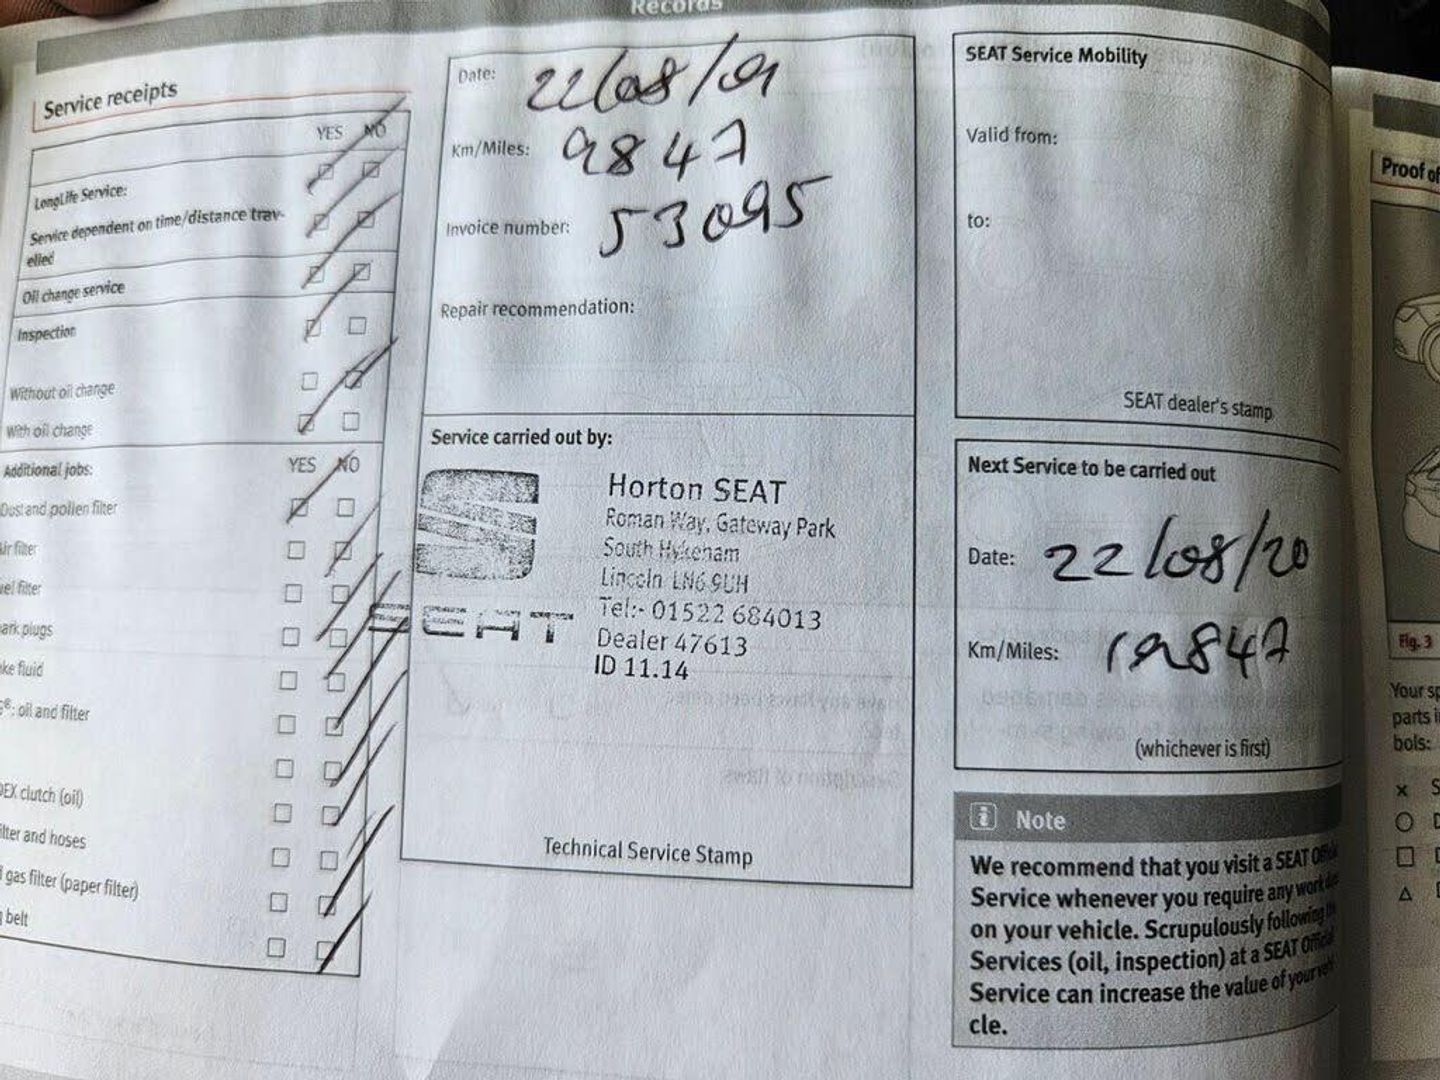 Records
Service receipts
YES NO
LongLife Service:
Service dependent on time/distance trav-
elled
Oil change service
Inspection
Without oil change
With oil change
Additional jobs: YES NO
Dust and pollen filter
Air filter
uel filter
ark plugs
ke fluid
®: oil and filter
DEX clutch (oil)
ilter and hoses
gas filter (paper filter)
belt
Date: 22/08/19
Km/Miles: 9847
Invoice number: 53095
Repair recommendation:
Service carried out by:
SEAT
Horton SEAT
Roman Way, Gateway Park
South Hykeham
Lincoln LN6 9UH
Tel:- 01522 684013
Dealer 47613
ID 11.14
Technical Service Stamp
SEAT Service Mobility
Valid from:
to:
SEAT dealer's stamp
Next Service to be carried out
Date: 22/08/20
Km/Miles: 19847
(whichever is first)
i Note
We recommend that you visit a SEAT Official
Service whenever you require any work done
on your vehicle. Scrupulously following the
Services (oil, inspection) at a SEAT Official
Service can increase the value of your vehi-
cle.
Proof of
Fig. 3
Your sp
parts i
bols: